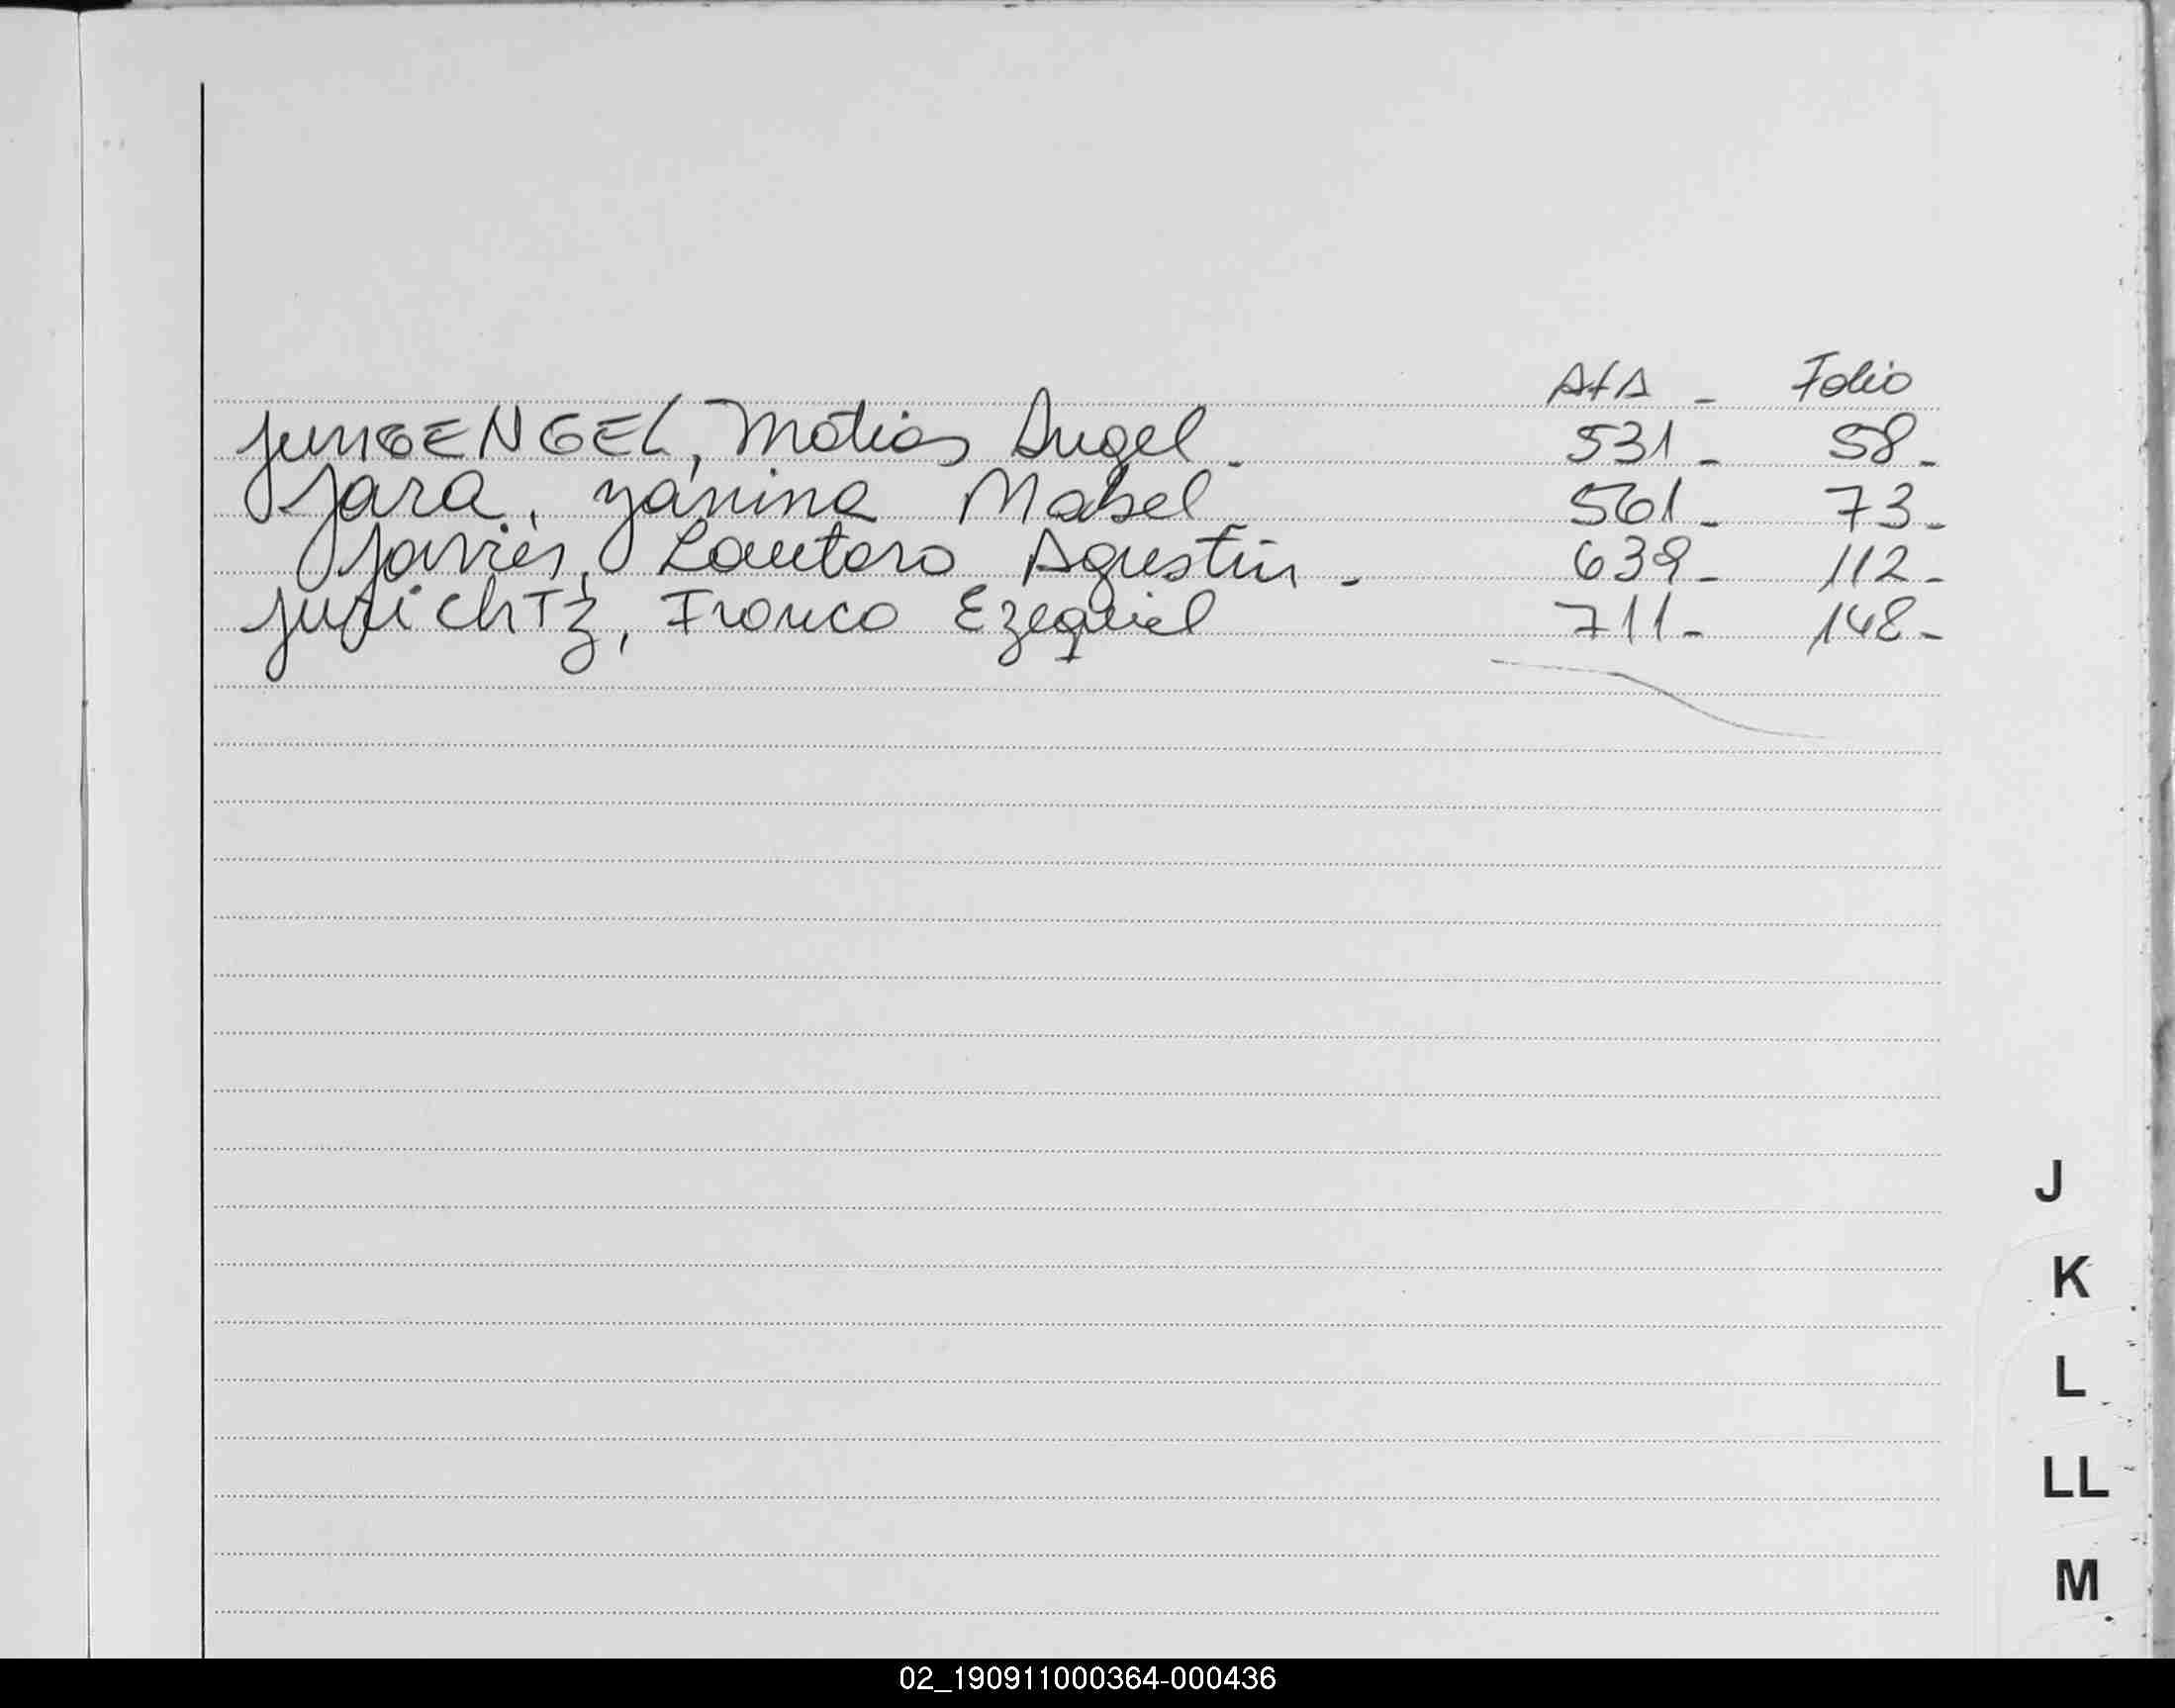 Acta - Folio
JUNGENGEL, Matias Angel - 531 - 58 -
Jara, Yanina Mabel 561 - 73 -
Javier, Lautaro Agustin - 639 - 112 -
Jurichtz, Franco Ezequiel 711 - 148 -
J
K
L
LL
M
02_190911000364-000436